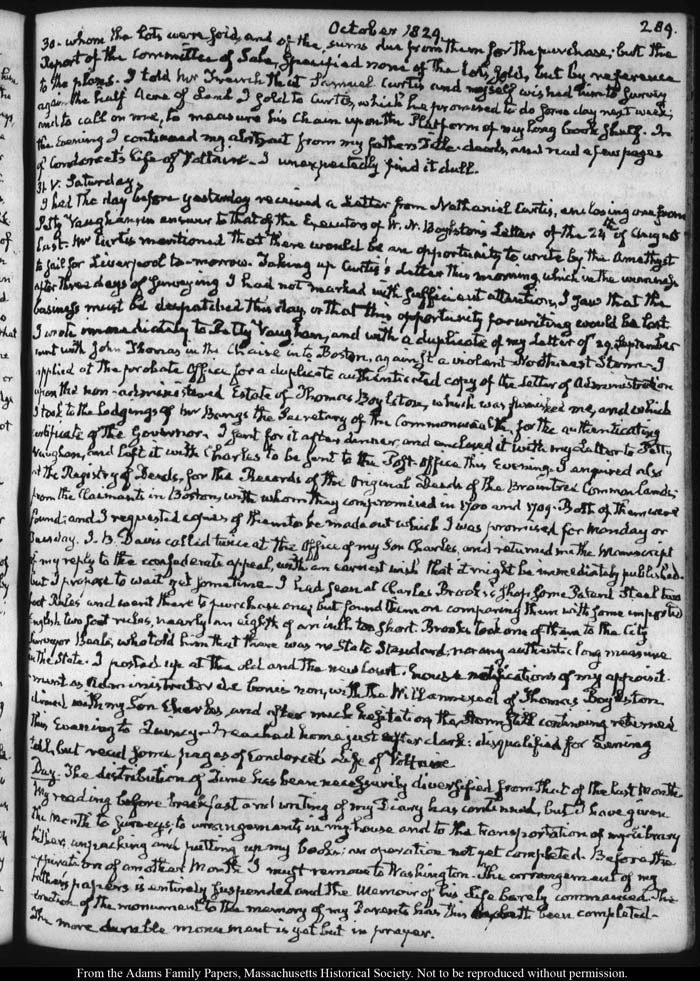 October 1829.
289.
30. whom the Lots were sold, and of the sums due from them for the purchase; but the
Report of the Committee of Sale, specified none of the Lots, sold, but by reference
to the plans. I told Mr French that Samuel Curtis and myself wished him to survey
again the half Acre of Land I sold to Curtis, which he promised to do some day next week;
and to call on me, to measure his Chain upon the Platform of my long Book Shelf. In
the Evening I continued my abstract from my fathers Title-deeds, and read a few pages
of Condorcet's Life of Voltaire. I unexpectedly find it dull.
31. V. Saturday.
I had the day before yesterday received a Letter from Nathaniel Curtis, enclosing one from
Petty Vaughan in answer to that of the Executors of W. N. Boylston's Letter of the 24th of August
last. Mr Curtis mentioned that there would be an opportunity to write by the Amethyst
to sail for Liverpool to-morrow. Taking up Curtis's Letter this morning, which in the weariness
after three days of surveying I had not marked with sufficient attention, I saw that the
business must be despatched this day, or that this opportunity for writing would be lost.
I wrote immediately to Petty Vaughan, and with a duplicate of my Letter of 29. September
went with John Thomas in the Chaise into Boston, against a violent Northeast Storm. I
applied at the probate Office for a duplicate authenticated copy of the Letter of Administration
upon the non-administered Estate of Thomas Boylston, which was furnished me, and which
I took to the Lodgings of Mr Bangs the Secretary of the Commonwealth, for the authenticating
certificate of the Governor. I sent for it after dinner, and enclosed it with my Letter to Petty
Vaughan, and left it with Charles to be sent to the Post-Office this Evening. I enquired also
at the Registry of Deeds, for the Records of the Original Deeds of the Braintree Common lands,
from the Claimants in Boston, with whom they compromised in 1700 and 1709. Both of them were
found; and I requested copies of them to be made out which I was promised for Monday or
Tuesday. I. P. Davis called twice at the Office of my Son Charles, and returned me the Manuscript
of my reply to the confederate appeal, with an earnest wish that it might be immediately published.
but I propose to wait yet sometime. I had seen at Charles Brooks's Shop, some Patent Steel two
foot Rules and went there to purchase one; but found them on comparing them with some imported
English two foot rules, nearly an eighth of an inch too short. Brooks took one of them to the City
Surveyor Beals, who told him that there was no State Standard, nor any authentic long measure
in the State. I posted up at the old and the new Court-house notifications of my appoint-
ment as Administrator de bonis non, with the Will annexed of Thomas Boylston
dined with my Son Charles, and after much hesitation the Storm still continuing returned
this Evening to Quincy. I reached home just after dark: disqualified for Evening
toil, but read some pages of Condorcet's Life of Voltaire
Day. The distribution of Time has been necessarily diversified from that of the last Month
My reading before breakfast and writing of my Diary has continued, but I have given
the Month to surveys, to arrangements in my house and to the transportation of my Library
hither, unpacking and putting up my books: an operation not yet completed. Before the
expiration of another Month I must remove to Washington. The arrangement of my
father's papers is entirely suspended and the Memoir of his Life barely commenced. The
erection of the monument to the memory of my Parents has this been completed.
The more durable monument is yet but in prayer.
From the Adams Family Papers, Massachusetts Historical Society. Not to be reproduced without permission.